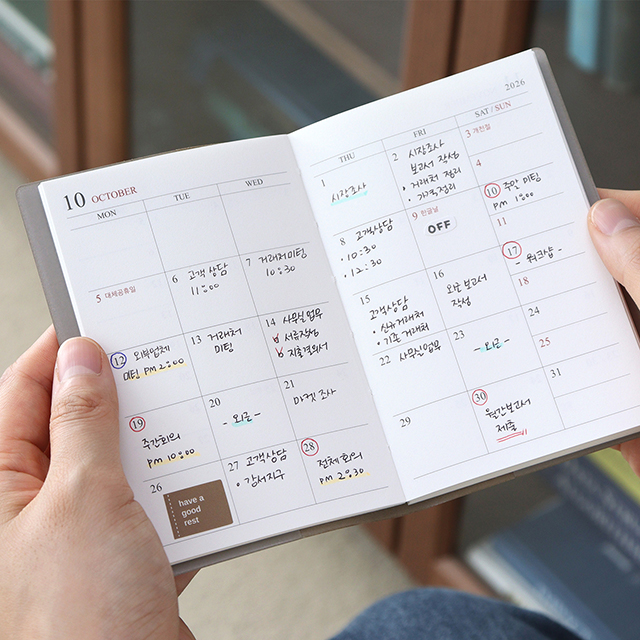 10 OCTOBER
MON TUE WED
5 대체공휴일
6 고객상담
11:00
7 거래처미팅
10:30
12 외부업체
미팅 PM 2:00
13 거래처
미팅
14 사무실업무
서류작성
지출결의서
19
주간회의
PM 10:00
20
- 외근 -
21
마켓조사
26
have a
good
rest
27 고객상담
• 강서지구
28
전체회의
PM 2:30
2026
THU FRI SAT / SUN
1
시장조사
2 시장조사
보고서 작성
• 거래처 정리
• 가격정리
3 개천절
4
8 고객상담
• 10:30
• 12:30
9 한글날
OFF
10 주안 미팅
PM 1:00
11
15
고객상담
• 신규거래처
• 기존거래처
16
외근보고서
작성
17
- 워크샵 -
18
22 사무실업무
23
- 외근 -
24
25
29
30
월간보고서
제출
31